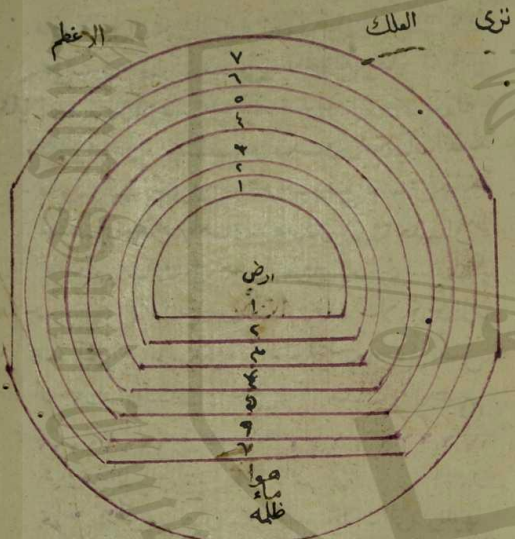 نرى الفلك الاعظم
٧
٦
٥
٤
٣
٢
١
ارض
١
٢
٣
٤
٥
٦
٧
هوا
ماء
ظلمه